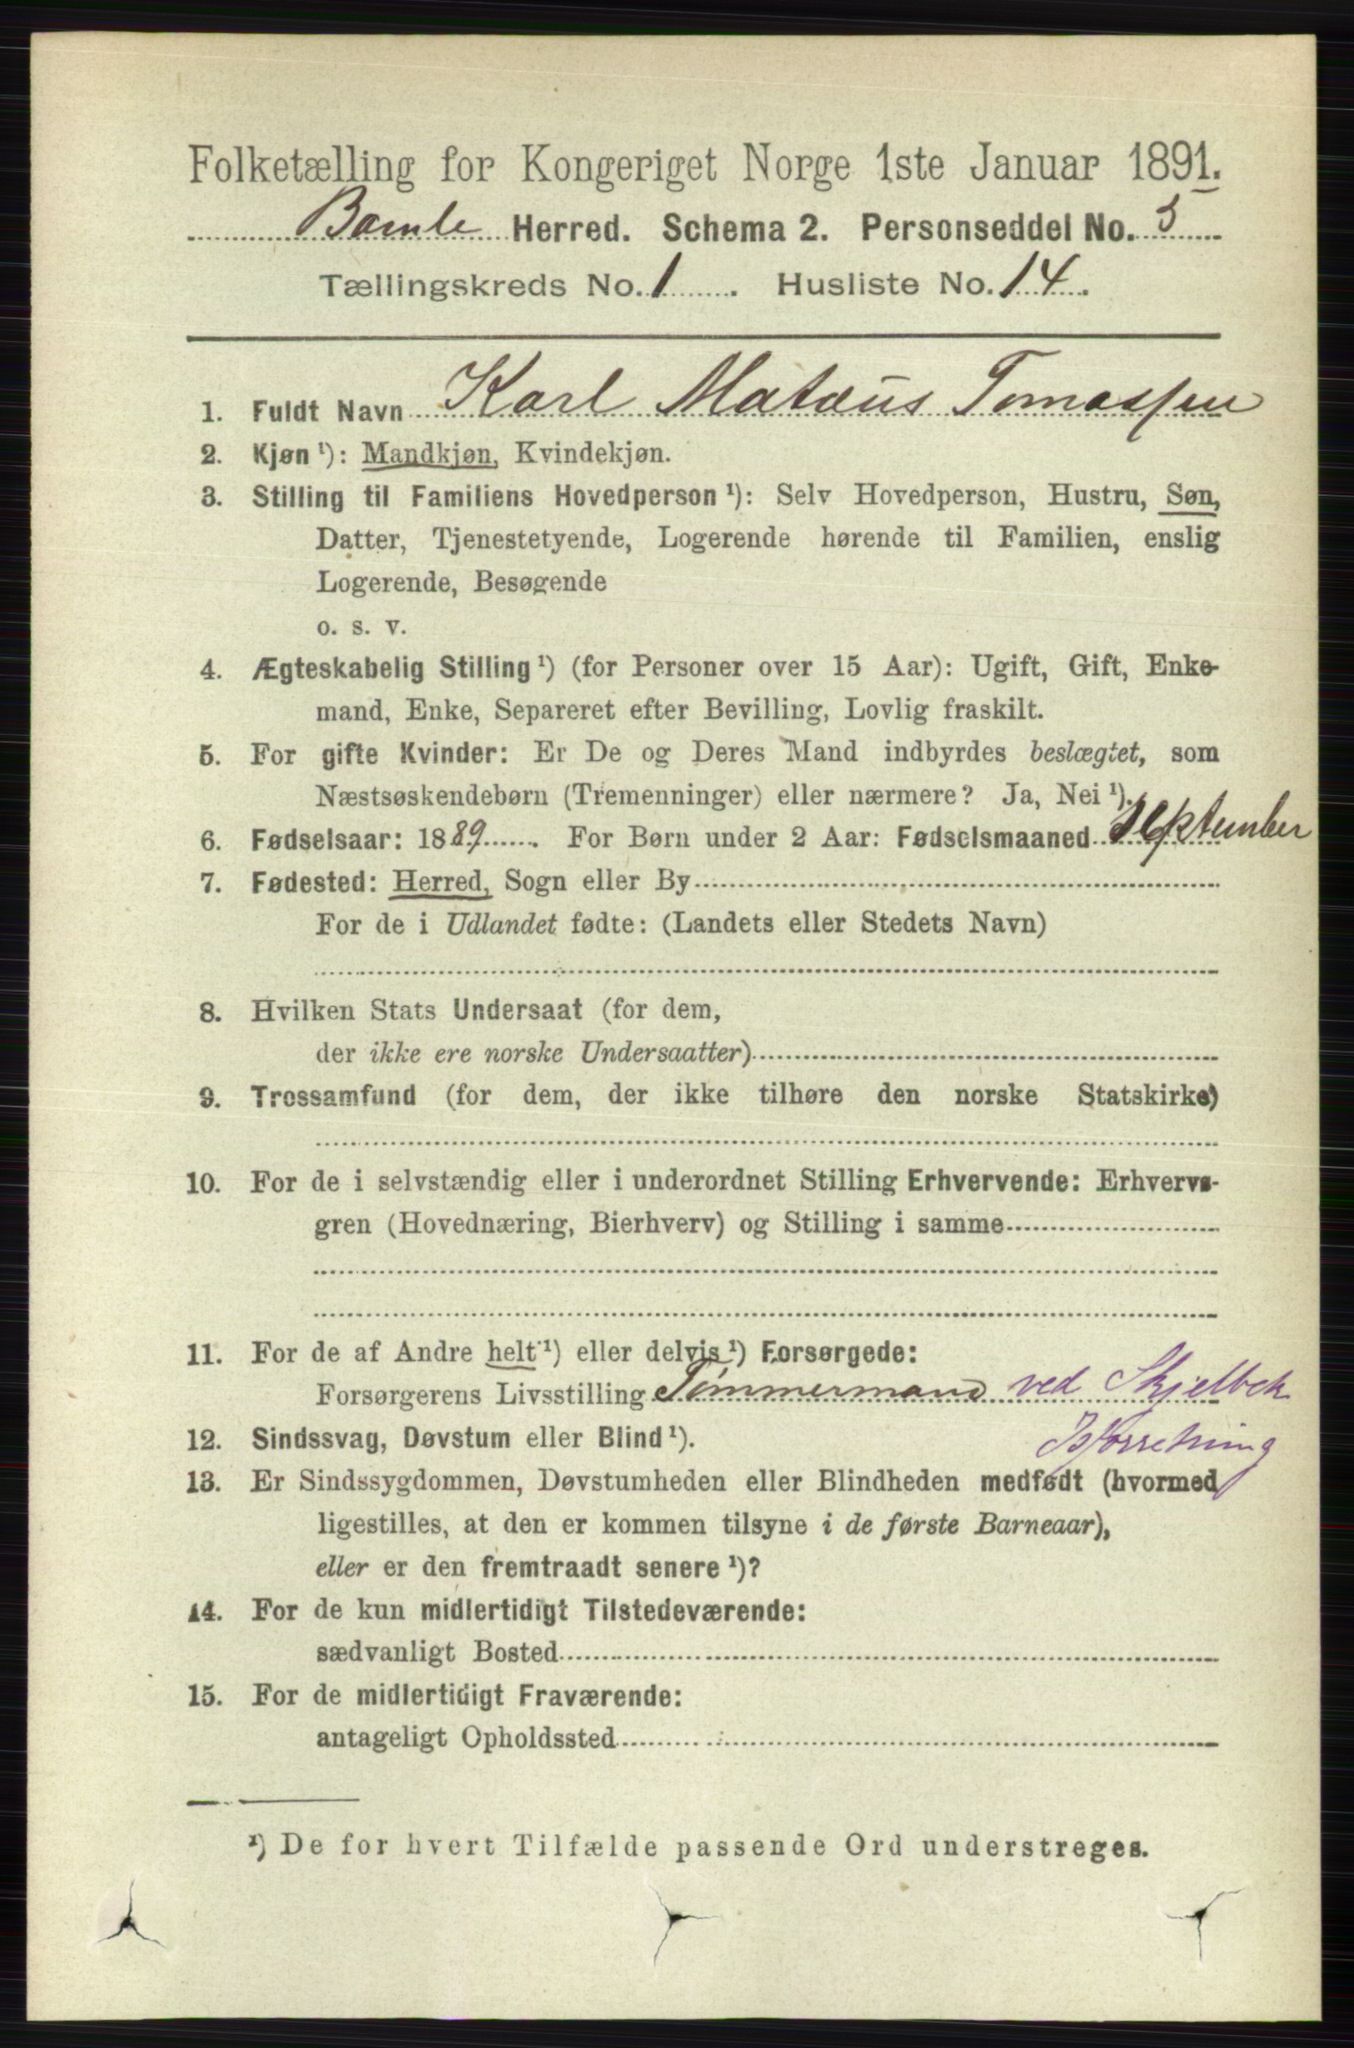 Folketælling for Kongeriget Norge 1ste Januar 1891.
Bamle Herred. Schema 2. Personseddel No. 5
Tællingskreds No. 1. Husliste No. 14.
1. Fuldt Navn Karl Matæus Tomassen
2. Kjøn ¹): Mandkjøn, Kvindekjøn.
3. Stilling til Familiens Hovedperson ¹): Selv Hovedperson, Hustru, Søn,
Datter, Tjenestetyende, Logerende hørende til Familien, enslig
Logerende, Besøgende
o. s. v.
4. Ægteskabelig Stilling ¹) (for Personer over 15 Aar): Ugift, Gift, Enke-
mand, Enke, Separeret efter Bevilling, Lovlig fraskilt.
5. For gifte Kvinder: Er De og Deres Mand indbyrdes beslægtet, som
Næstsøskendebørn (Tremenninger) eller nærmere? Ja, Nei ¹).
6. Fødselsaar: 1889. For Børn under 2 Aar: Fødselsmaaned September
7. Fødested: Herred, Sogn eller By
For de i Udlandet fødte: (Landets eller Stedets Navn)
8. Hvilken Stats Undersaat (for dem,
der ikke ere norske Undersaatter)
9. Trossamfund (for dem, der ikke tilhøre den norske Statskirke)
10. For de i selvstændig eller i underordnet Stilling Erhvervende: Erhvervs-
gren (Hovednæring, Bierhverv) og Stilling i samme
11. For de af Andre helt ¹) eller delvis ¹) Forsørgede:
Forsørgerens Livsstilling Tømmermand ved Skjelbek
12. Sindssvag, Døvstum eller Blind ¹).
13. Er Sindssygdommen, Døvstumheden eller Blindheden medfødt (hvormed
ligestilles, at den er kommen tilsyne i de første Barneaar),
eller er den fremtraadt senere ¹)?
14. For de kun midlertidigt Tilstedeværende:
sædvanligt Bosted
15. For de midlertidigt Fraværende:
antageligt Opholdssted
¹) De for hvert Tilfælde passende Ord understreges.